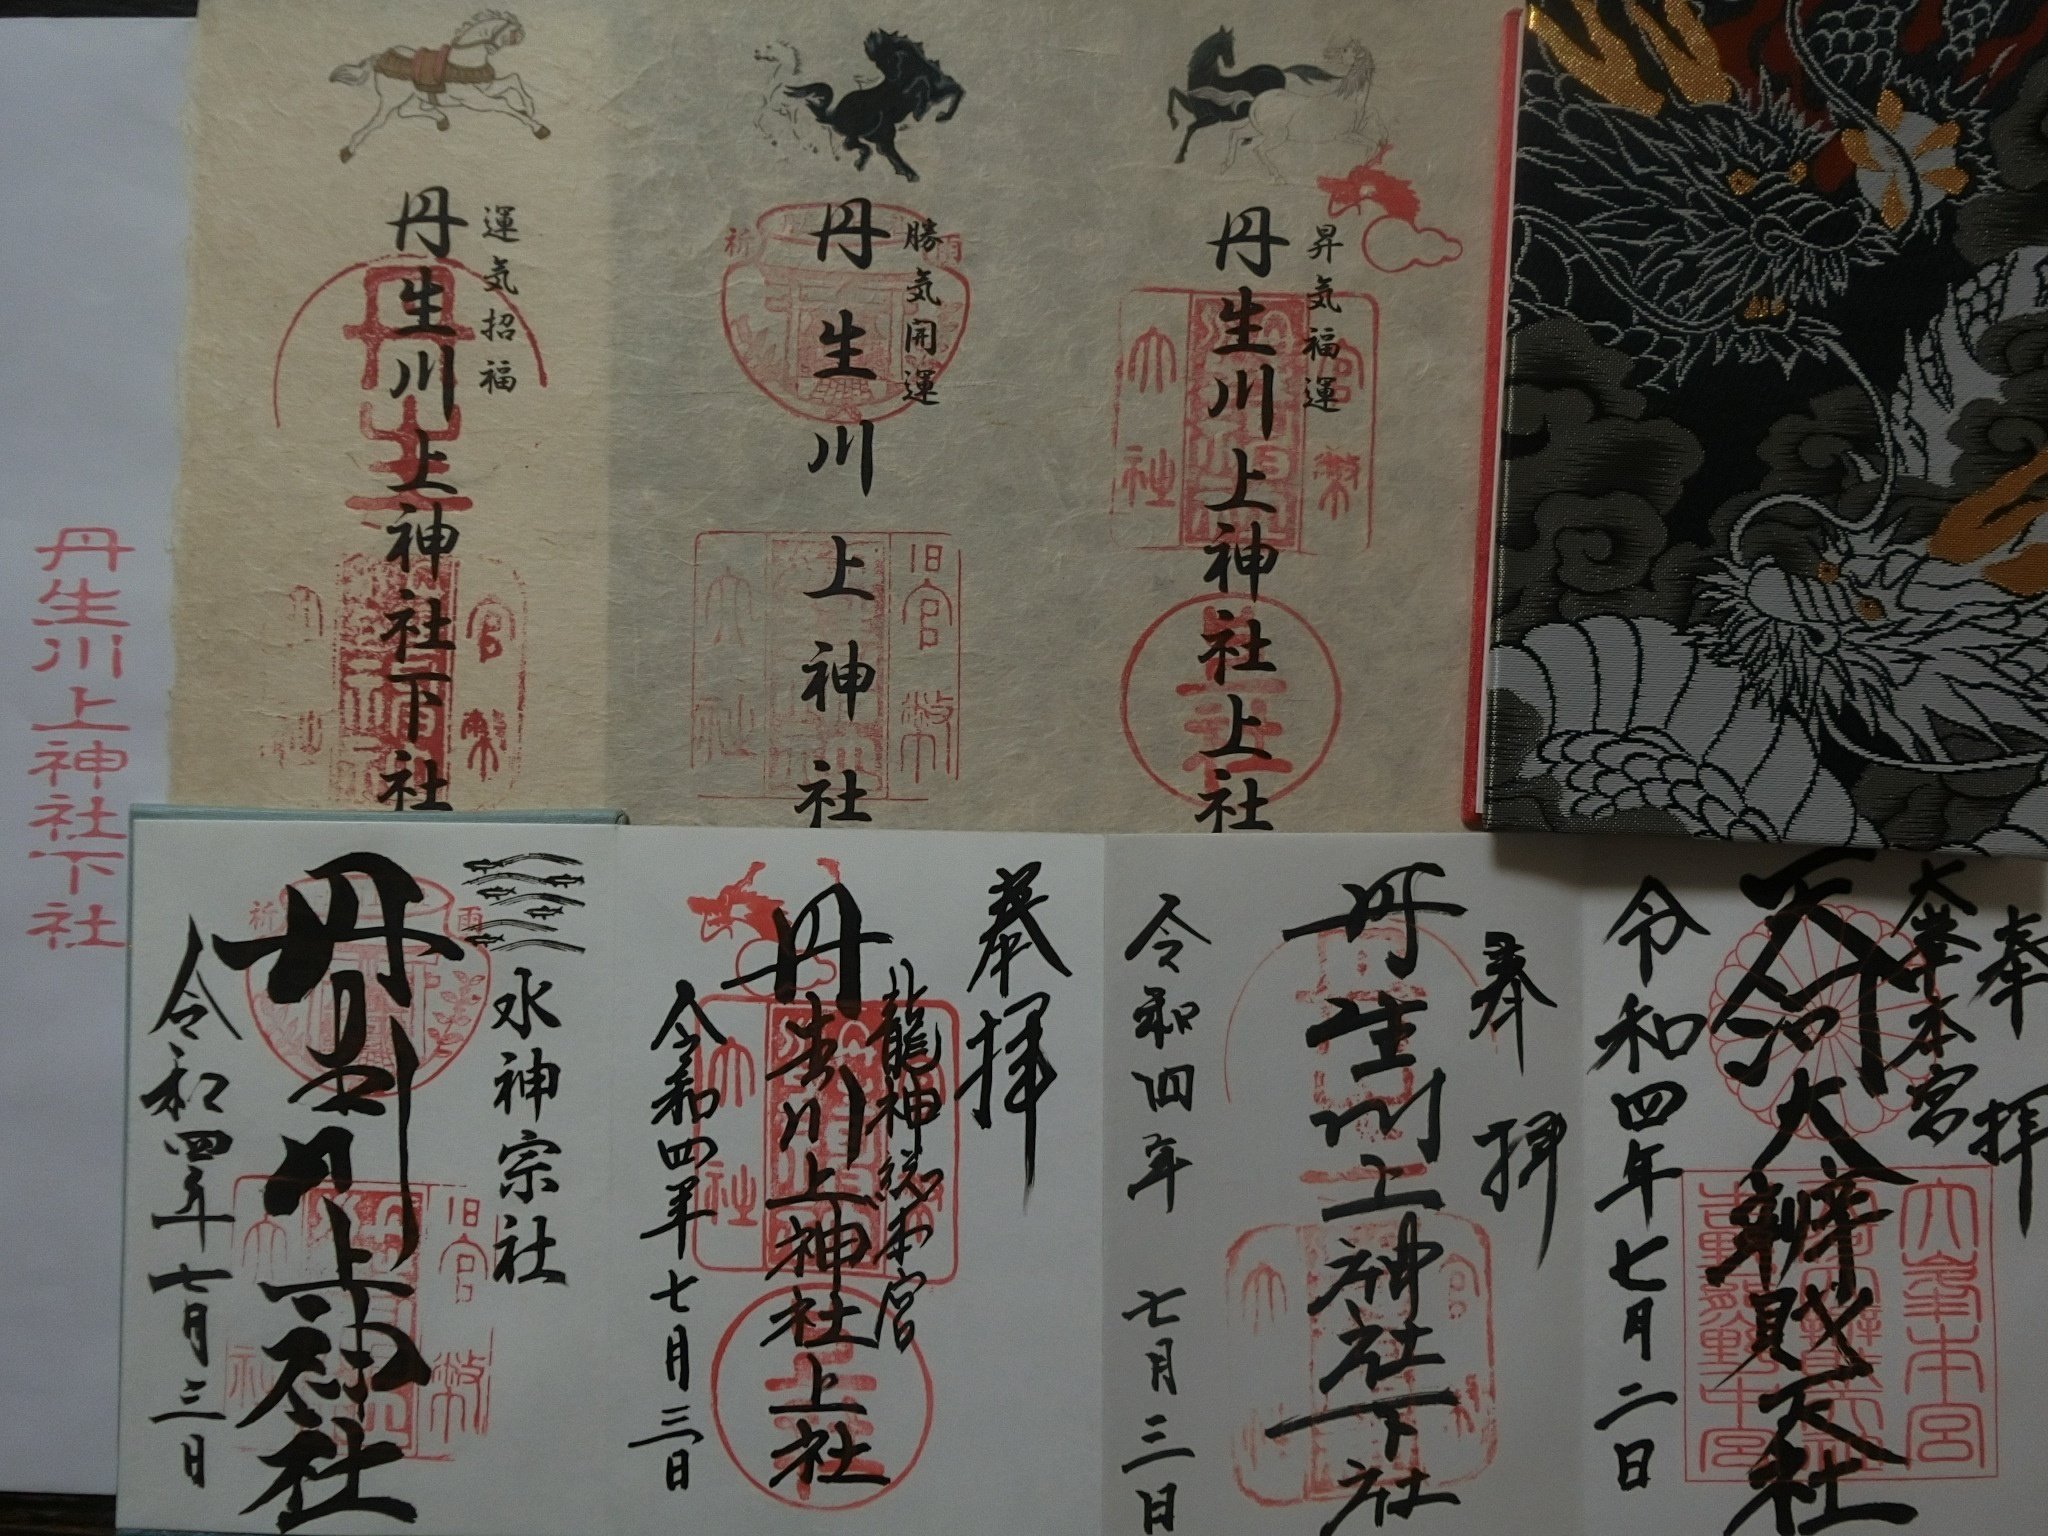 丹生川上神社下社
運気招福
丹生川上神社下社
勝気開運
丹生川上神社
祈雨
旧官幣大社
昇気福運
丹生川上神社上社
官幣大社
水神宗社
丹生川上神社
令和四年七月三日
祈雨
旧官幣大社
奉拝
龍神総本宮
丹生川上神社上社
令和四年七月三日
奉拝
丹生川上神社下社
令和四年七月三日
奉拝
大峯本宮
天河大辨財天社
令和四年七月二日
大峯本宮